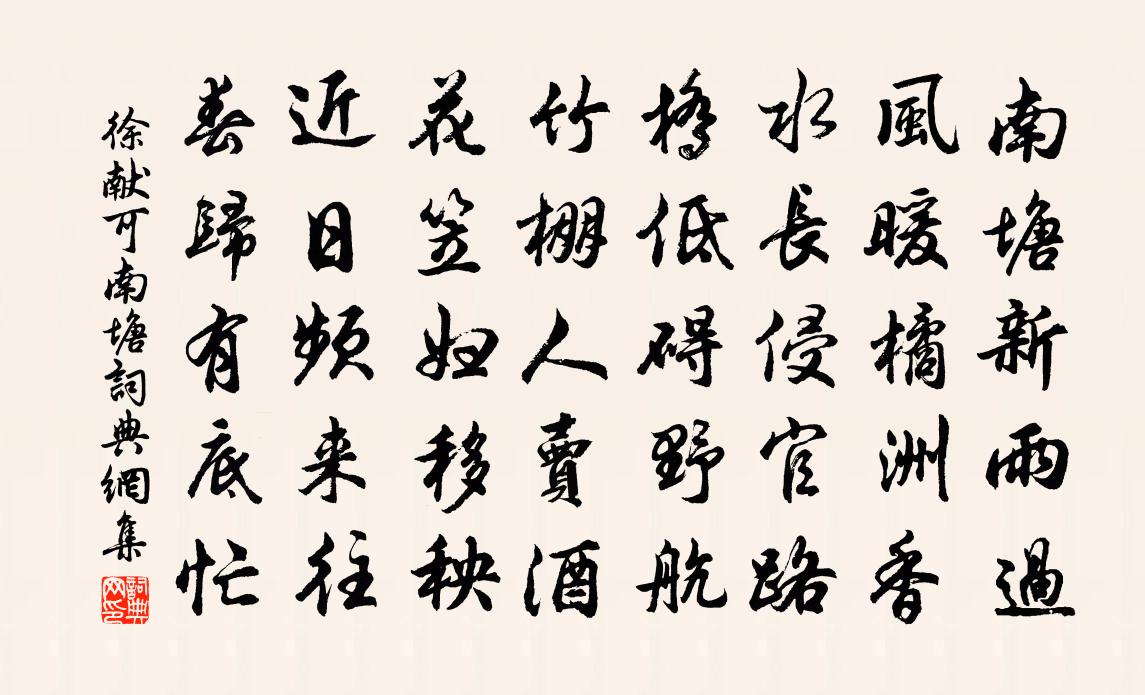 南塘新雨過
風暖橘洲香
水長侵官路
橋低碍野航
竹棚人賣酒
花笠妇移秧
近日频来往
春歸有底忙
徐献可南塘詞典網集
詞典网印